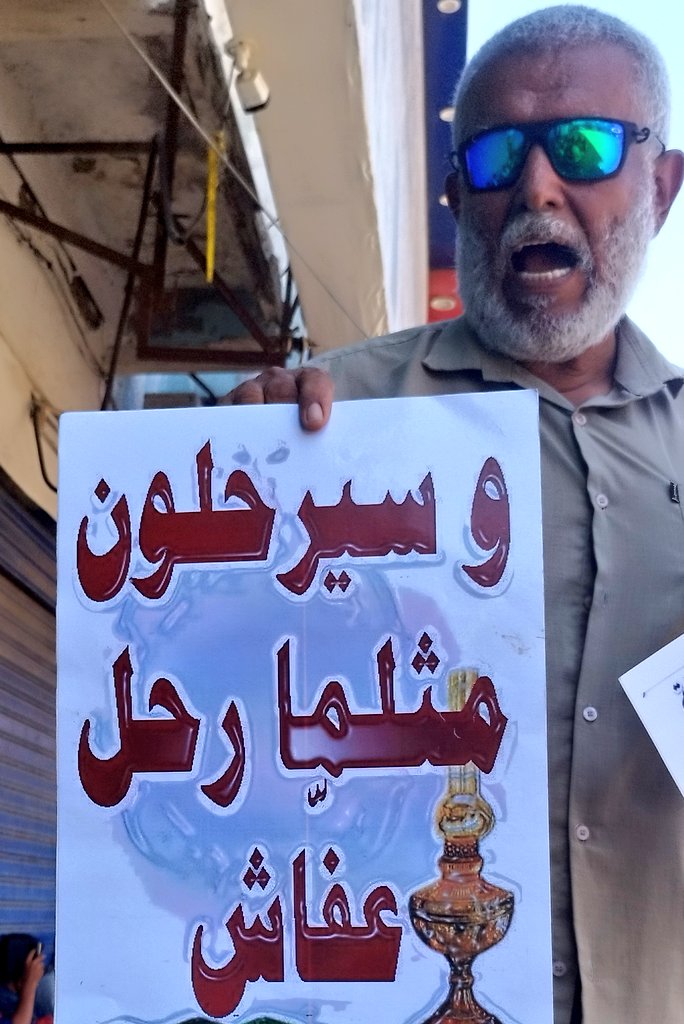 و سيرحلون
مثلما رحل
عفاش